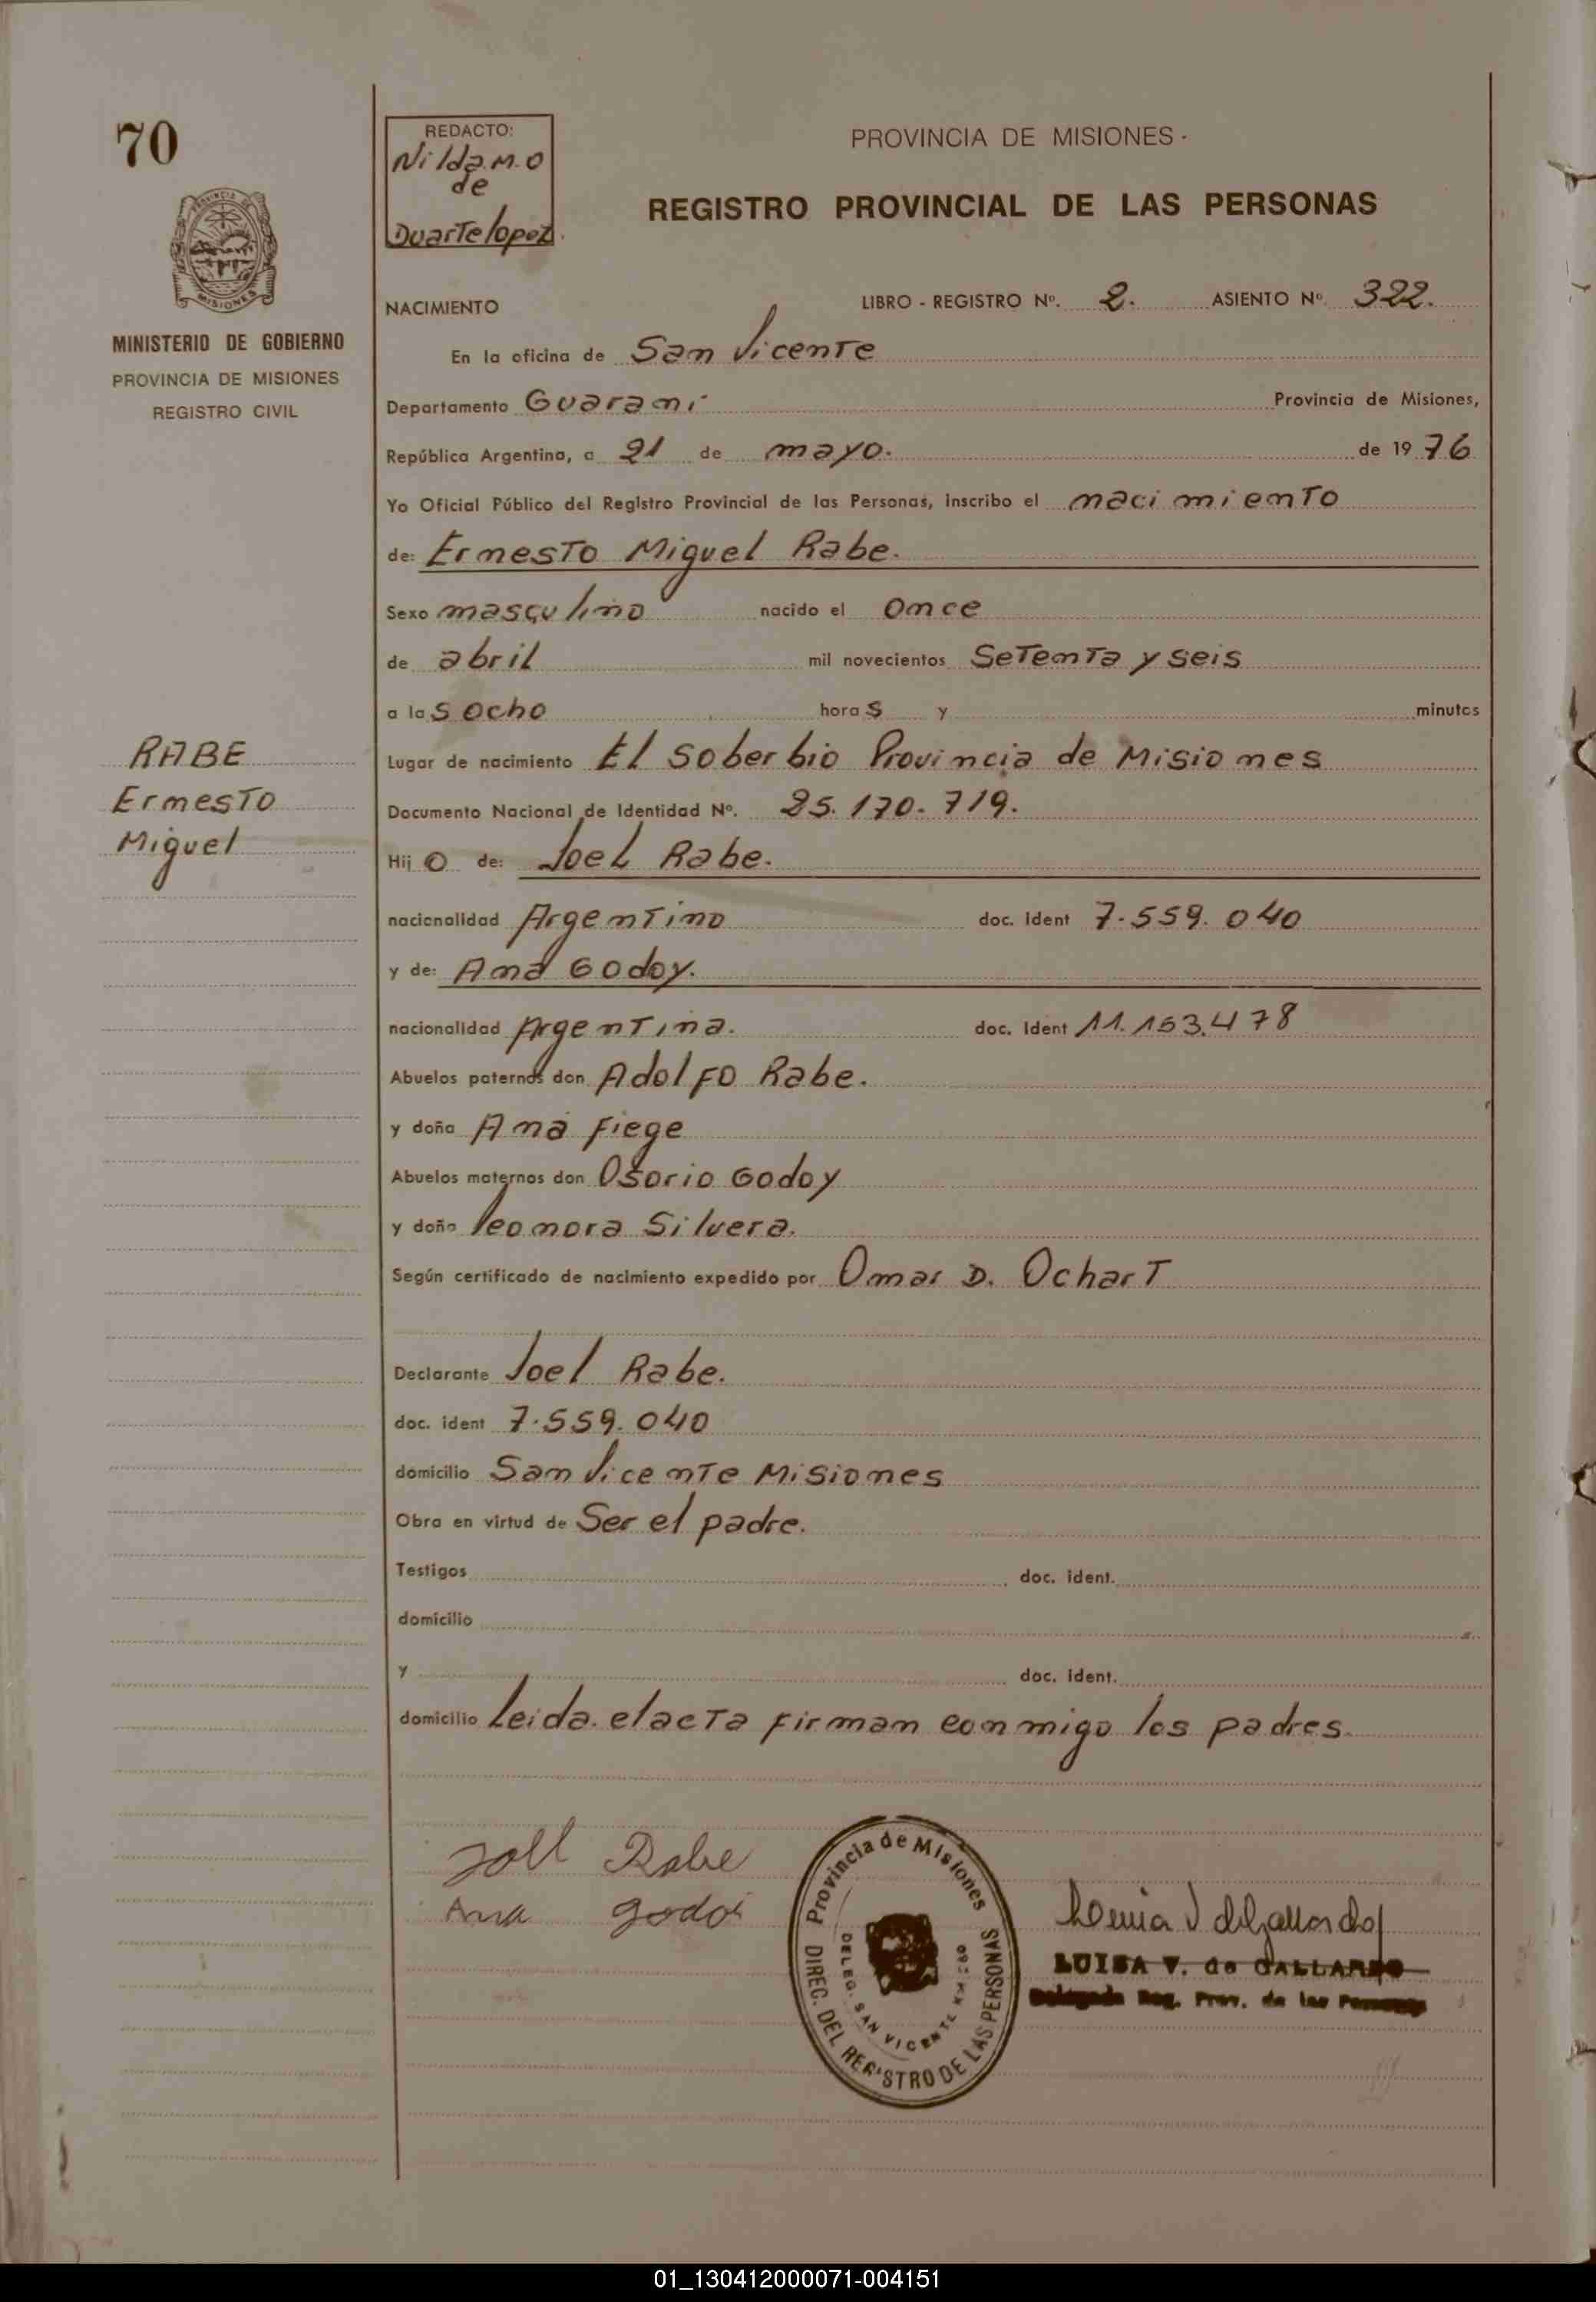 70
REDACTO:
Nilda.M.O
de
Duarte lopez.
PROVINCIA DE MISIONES -
REGISTRO PROVINCIAL DE LAS PERSONAS
PROVINCIA DE
MISIONES
MINISTERIO DE GOBIERNO
PROVINCIA DE MISIONES
REGISTRO CIVIL
NACIMIENTO LIBRO - REGISTRO Nº. 2. ASIENTO Nº 322.
En la oficina de San Vicente
Departamento Guaraní Provincia de Misiones,
República Argentina, a 21 de mayo. de 1976
Yo Oficial Público del Registro Provincial de las Personas, inscribo el nacimiento
de: Ernesto Miguel Rabe.
Sexo masculino nacido el once
de abril mil novecientos Setenta y seis
a las ocho horas y minutos
RABE
Ernesto
Miguel
Lugar de nacimiento El Soberbio Provincia de Misiones
Documento Nacional de Identidad Nº. 25.170.719.
Hijo de: Joel Rabe.
nacionalidad Argentino doc. Ident 7.559.040
y de: Ana Godoy.
nacionalidad Argentina. doc. Ident 11.153.478
Abuelos paternos don Adolfo Rabe.
y doña Ana Fiege
Abuelos maternos don Osorio Godoy
y doña leonora Silvera.
Según certificado de nacimiento expedido por Omar D. Ochart
Declarante Joel Rabe.
doc. ident 7.559.040
domicilio San Vicente Misiones
Obra en virtud de Ser el padre.
Testigos doc. ident.
domicilio
y doc. ident.
domicilio Leida el acta firman conmigo los padres.
Joel Rabe
Ana Godoi
Provincia de Misiones
DIREC. DEL REGISTRO DE LAS PERSONAS
DELEG. SAN VICENTE KM 260
LUISA V. de GALLARDO
Delegada Reg. Prov. de las Personas
01_130412000071-004151